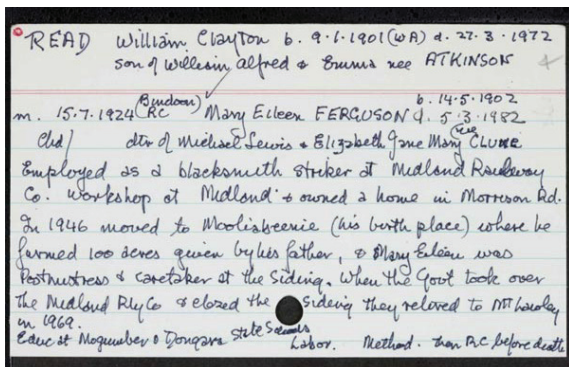 READ William Clayton b. 9.1.1901 (WA) d. 27.3.1972
son of William Alfred & Emma nee ATKINSON
m. 15.7.1924 (Bindoon) RC Mary Eileen FERGUSON b. 14.5.1902 d. 5.3.1982
Chd/ dtr of Michael Lewis & Elizabeth Jane Mary nee CLUNE
Employed as a blacksmith striker at Midland Railway
Co. Workshop at Midland & owned a home in Morrison Rd.
In 1946 moved to Mooliabeenie (his birth place) where he
farmed 100 acres given by his father, & Mary Eileen was
Postmistress & caretaker at the Siding. When the Govt took over
the Midland Rly Co & closed the Siding they retired to Mt Lawley
in 1969.
Educ at Mogumber & Dongara State Schools Labor. Method. then RC before death